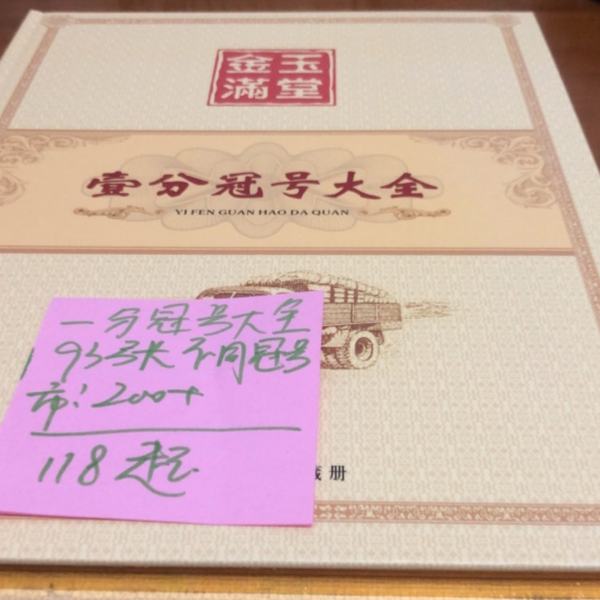 金玉
滿堂
壹分冠号大全
YI FEN GUAN HAO DA QUAN
一分冠号大全
93张不同冠号
市:200+
118起
册